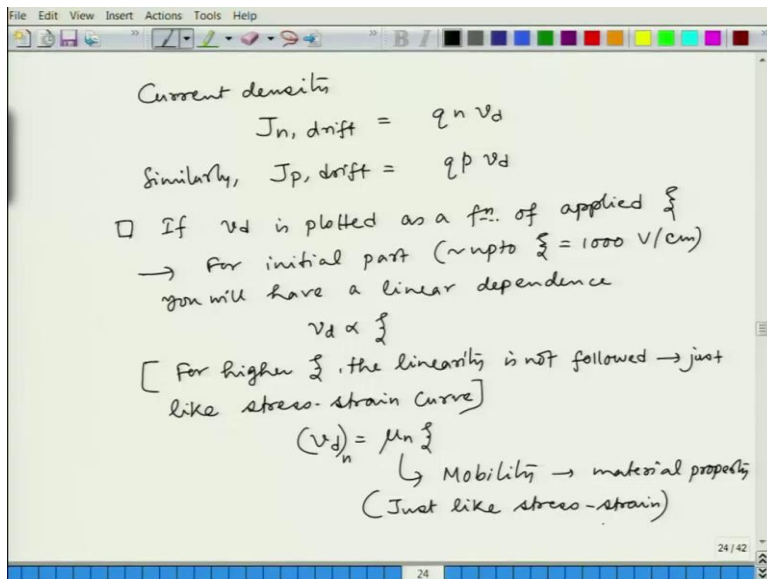 File Edit View Insert Actions Tools Help
B I
Current density
Jn, drift = q n vd
Similarly, Jp, drift = q p vd
□ If vd is plotted as a fn. of applied ξ
→ For initial part (~ upto ξ = 1000 V/cm)
you will have a linear dependence
vd ∝ ξ
[ For higher ξ, the linearity is not followed → just
like stress-strain curve]
(vd)n = μn ξ
↳ Mobility → material property
(Just like stress-strain)
24 / 42
24